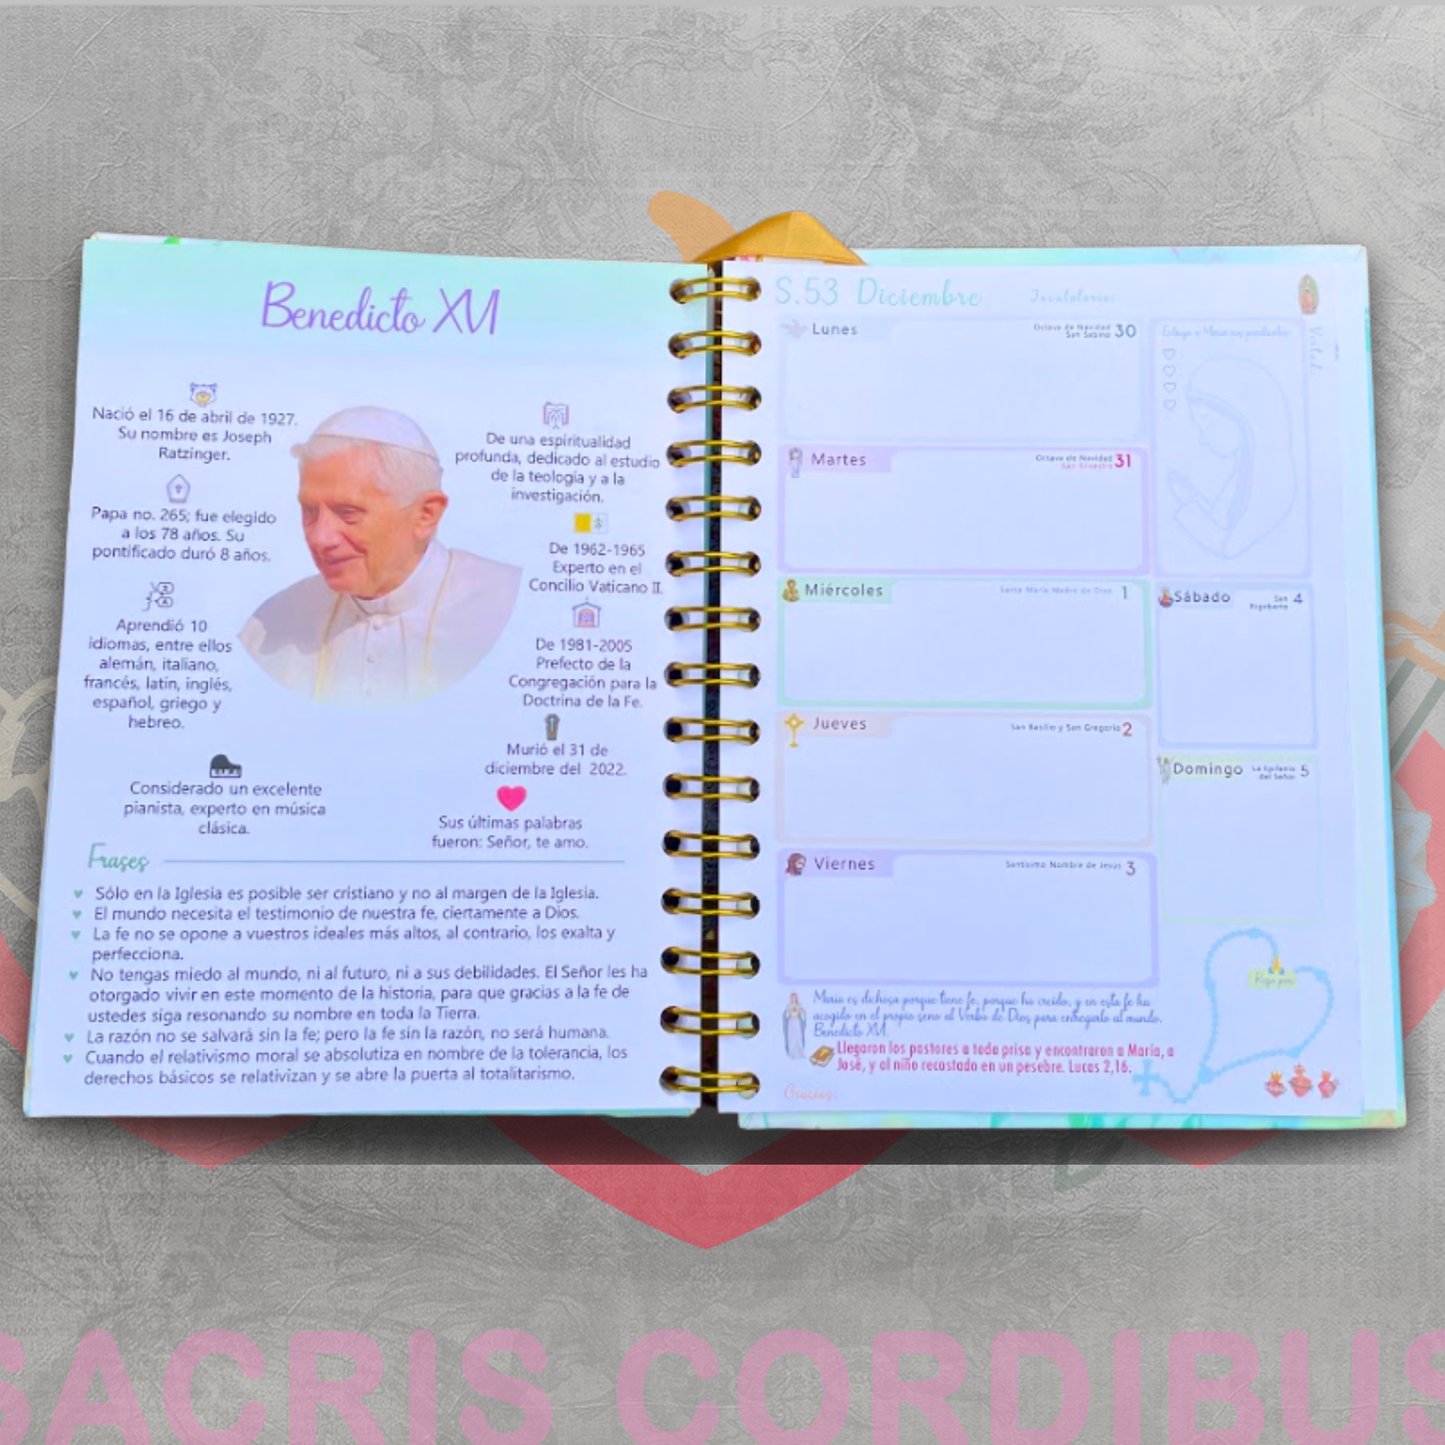 Benedicto XVI
Nació el 16 de abril de 1927.
Su nombre es Joseph
Ratzinger.
Papa no. 265; fue elegido
a los 78 años. Su
pontificado duró 8 años.
Aprendió 10
idiomas, entre ellos
alemán, italiano,
francés, latín, inglés,
español, griego y
hebreo.
Considerado un excelente
pianista, experto en música
clásica.
De una espiritualidad
profunda, dedicado al estudio
de la teología y a la
investigación.
De 1962-1965
Experto en el
Concilio Vaticano II.
De 1981-2005
Prefecto de la
Congregación para la
Doctrina de la Fe.
Murió el 31 de
diciembre del 2022.
Sus últimas palabras
fueron: Señor, te amo.
Frases
Sólo en la Iglesia es posible ser cristiano y no al margen de la Iglesia.
El mundo necesita el testimonio de nuestra fe, ciertamente a Dios.
La fe no se opone a vuestros ideales más altos, al contrario, los exalta y
perfecciona.
No tengas miedo al mundo, ni al futuro, ni a sus debilidades. El Señor les ha
otorgado vivir en este momento de la historia, para que gracias a la fe de
ustedes siga resonando su nombre en toda la Tierra.
La razón no se salvará sin la fe; pero la fe sin la razón, no será humana.
Cuando el relativismo moral se absolutiza en nombre de la tolerancia, los
derechos básicos se relativizan y se abre la puerta al totalitarismo.
S.53 Diciembre
Jaculatoria:
Lunes
Octava de Navidad
San Sabino
30
Martes
Octava de Navidad
San Silvestre
31
Miércoles
Santa María Madre de Dios
1
Jueves
San Basilio y San Gregorio
2
Viernes
Santísimo Nombre de Jesús
3
Sábado
San
Rigoberto
4
Domingo
La Epifanía
del Señor
5
María es dichosa porque tiene fe, porque ha creído, y en esta fe ha
acogido en el propio seno al Verbo de Dios para entregarlo al mundo.
Benedicto XVI.
Llegaron los pastores a toda prisa y encontraron a María, a
José, y al niño recostado en un pesebre. Lucas 2,16.
Gracias:
SACRIS CORDIBUS